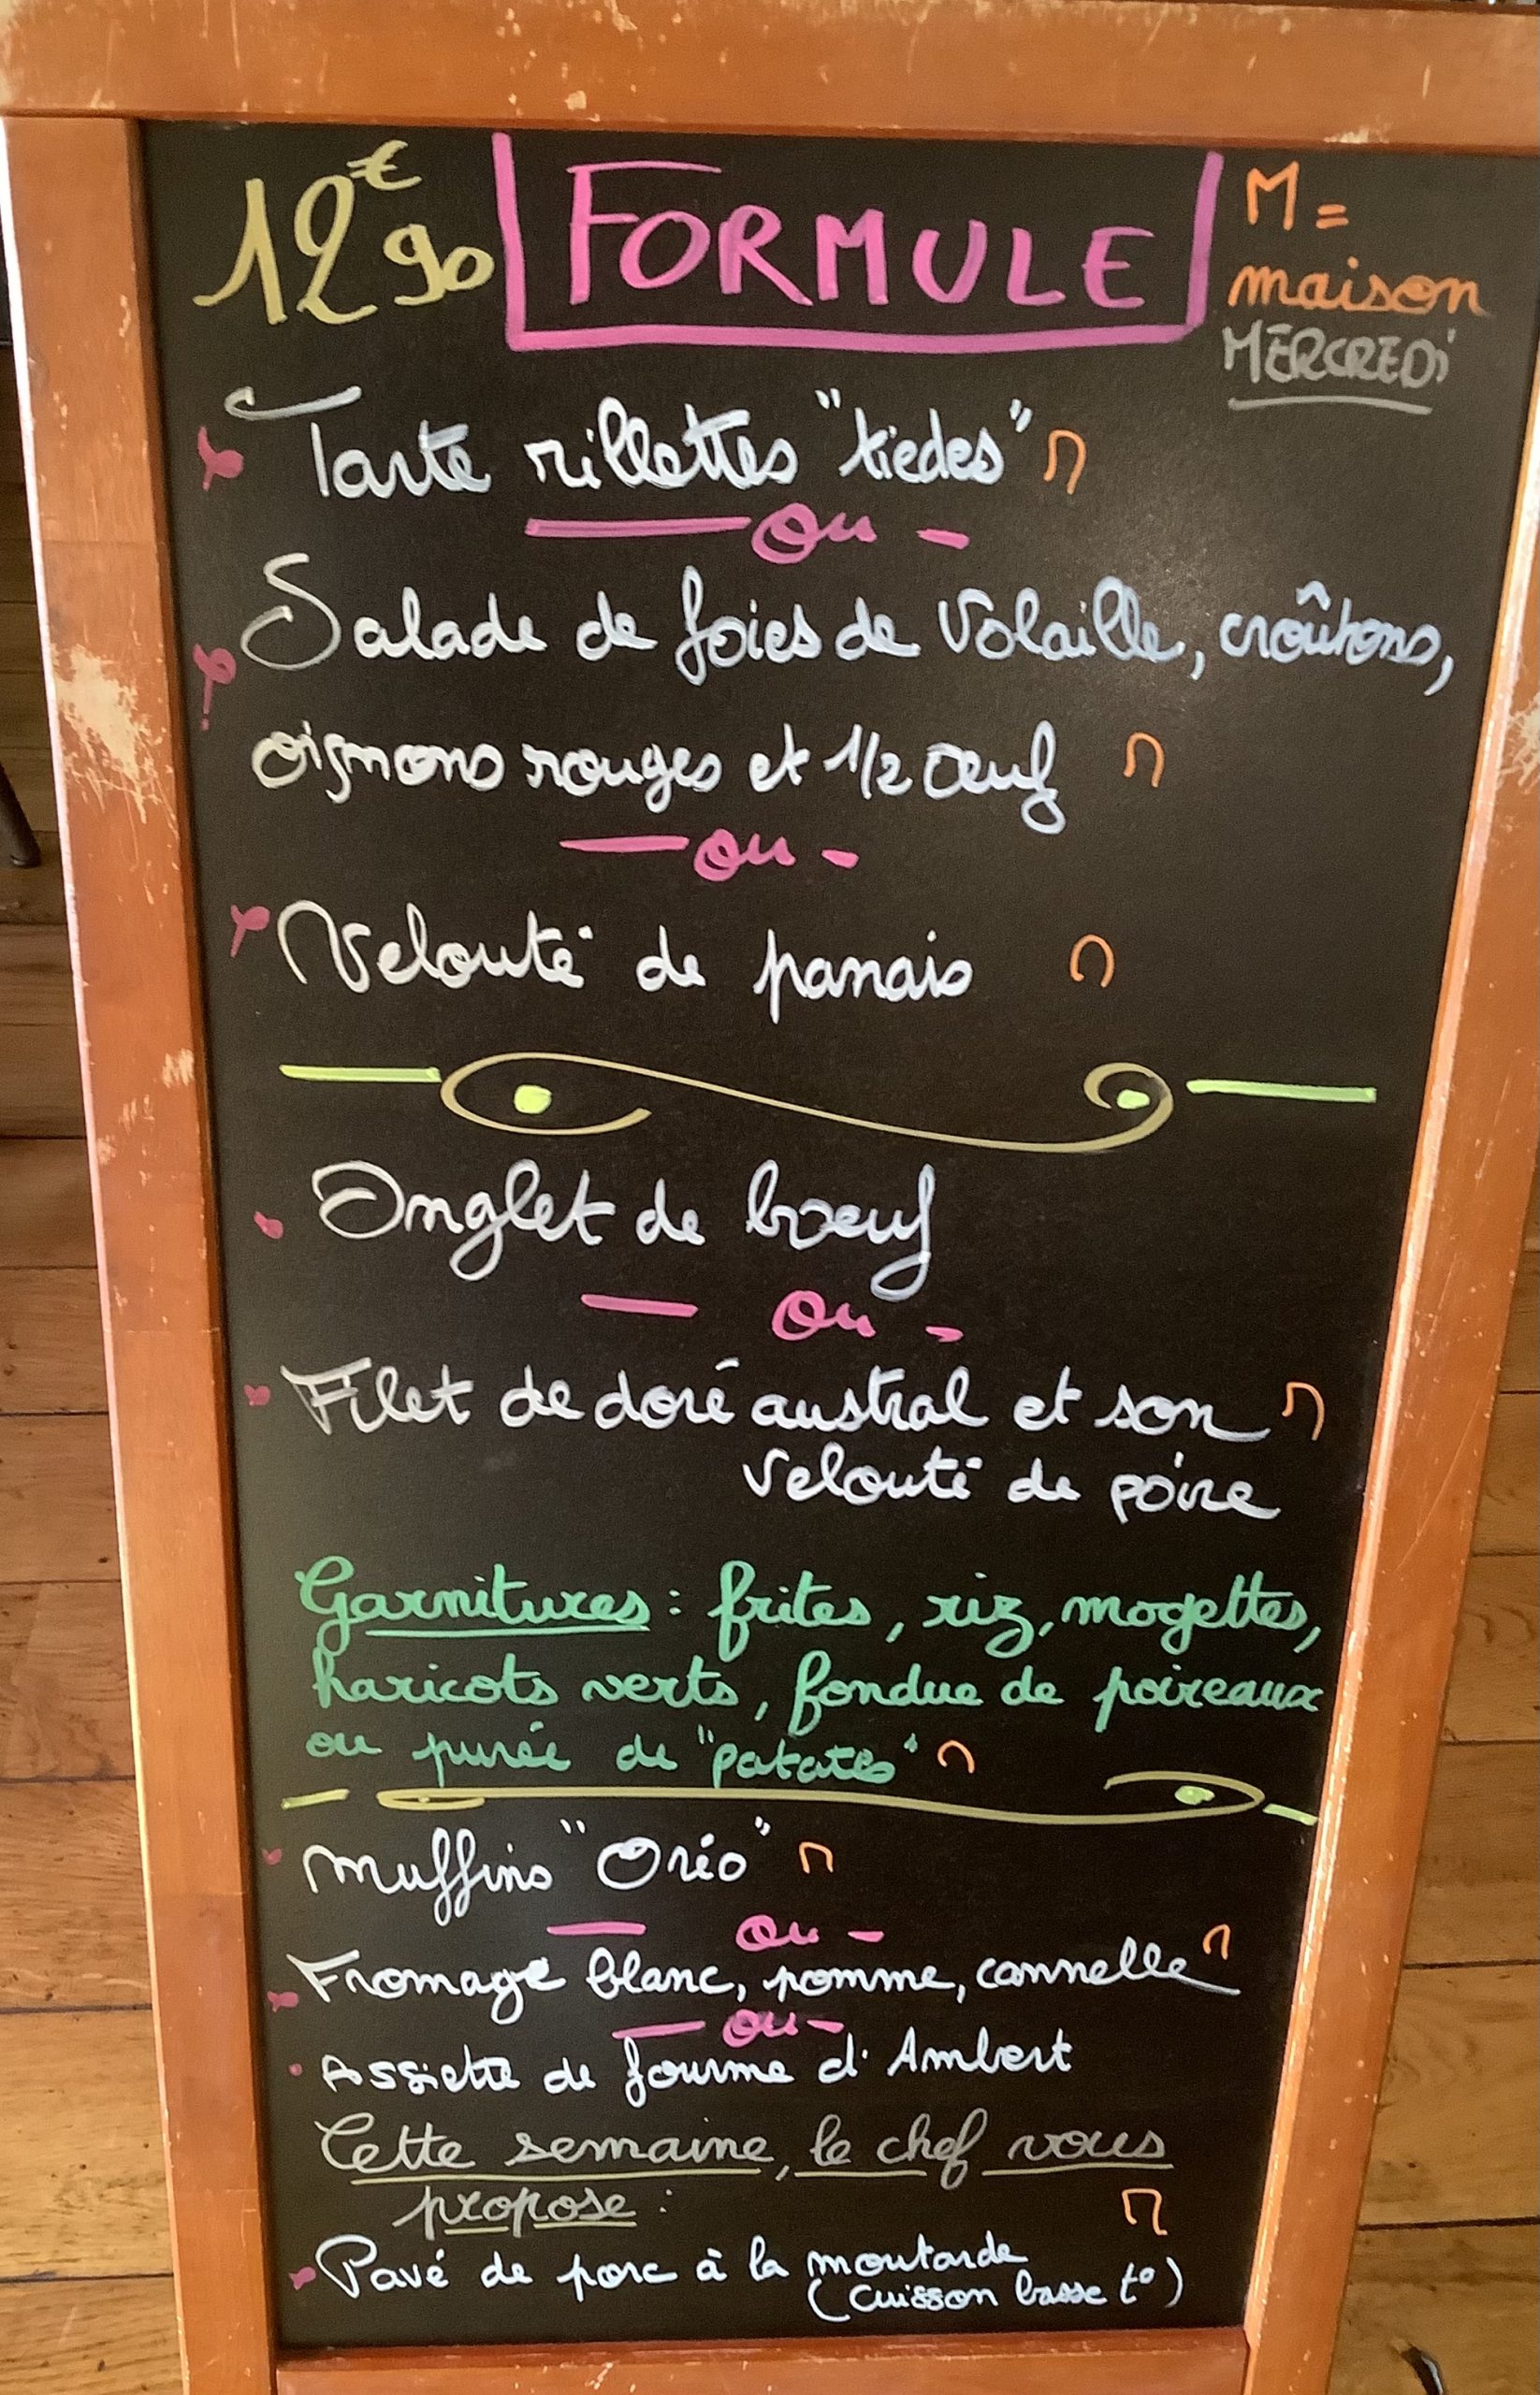 12€90 FORMULE M =
maison
MERCREDI
Tarte rillettes "tiedes" M
ou
Salade de foies de volaille, croûtons,
oignons rouges et 1/2 œuf M
ou
Velouté de panais M
Onglet de bœuf
ou
Filet de doré austral et son M
velouté de poire
Garnitures : frites, riz, mogettes,
haricots verts, fondue de poireaux
ou purée de "patates" M
Muffins "Oréo" M
ou
Fromage blanc, pomme, cannelle M
ou
Assiette de fourme d'Ambert
Cette semaine, le chef vous
propose : M
Pavé de porc à la moutarde
(cuisson basse t°)